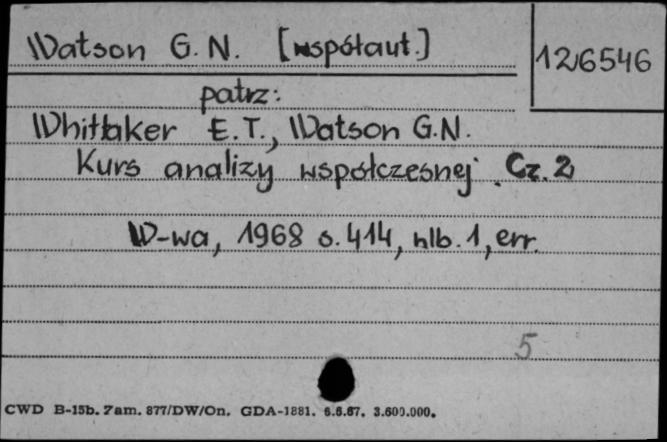 Watson G. N. [współaut.]
126546
patrz:
Whittaker E.T., Watson G.N.
Kurs analizy współczesnej. Cz. 2
W-wa, 1968 s. 414, nlb. 1, err.
5
CWD B-15b. Zam. 877/DW/On. GDA-1881. 6.6.67. 3.600.000.